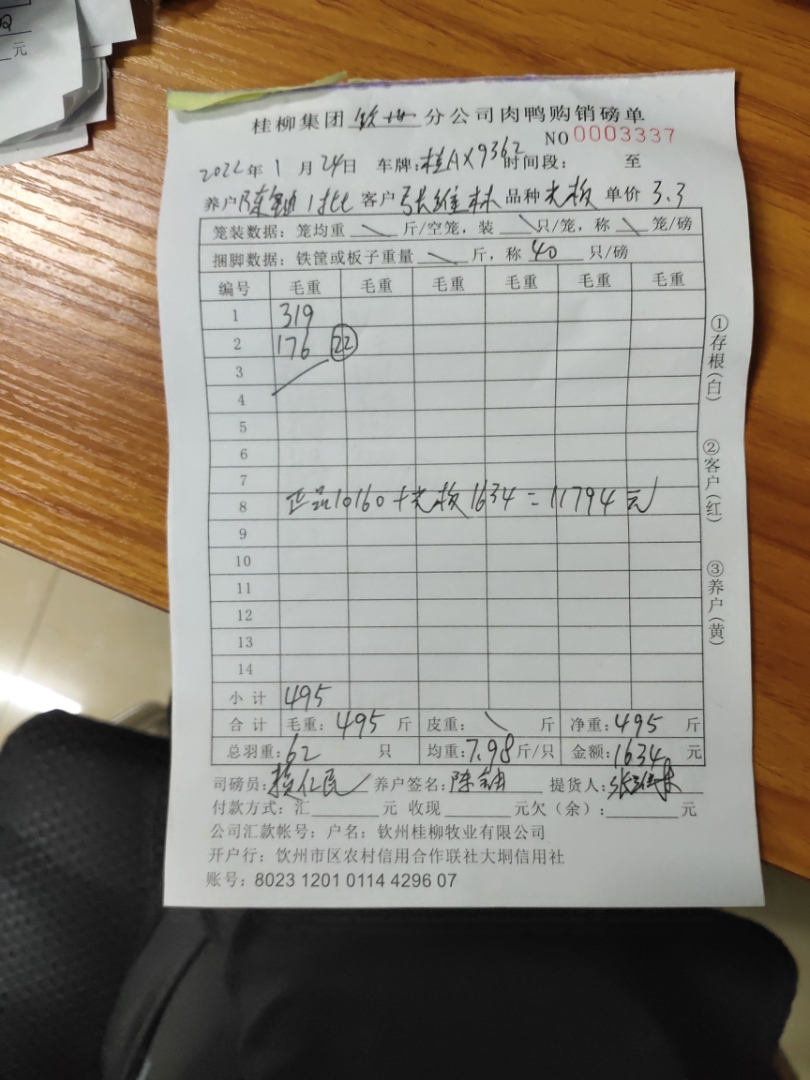 元
桂柳集团钦州分公司肉鸭购销磅单
NO 0003337
2022年1月24日 车牌:桂AX9362 时间段: 至
养户 陈 1批 客户 张维林 品种 光板 单价 3.3
笼装数据: 笼均重 \ 斤/空笼, 装 \ 只/笼, 称 \ 笼/磅
捆脚数据: 铁筐或板子重量 \ 斤, 称 40 只/磅
编号 毛重 毛重 毛重 毛重 毛重 毛重
1 319
2 176 22
3
4
5
6
7
8 正品10160+光板1634=11794元
9
10
11
12
13
14
小计 495
合计 毛重: 495 斤 皮重: \ 斤 净重: 495 斤
总羽重: 62 只 均重: 7.98 斤/只 金额: 1634 元
司磅员: 仁民 养户签名: 陈 提货人: 张维林
付款方式: 汇 元 收现 元欠（余）: 元
公司汇款帐号: 户名: 钦州桂柳牧业有限公司
开户行: 钦州市区农村信用合作联社大垌信用社
账号: 8023 1201 0114 4296 07
①存根(白)
②客户(红)
③养户(黄)